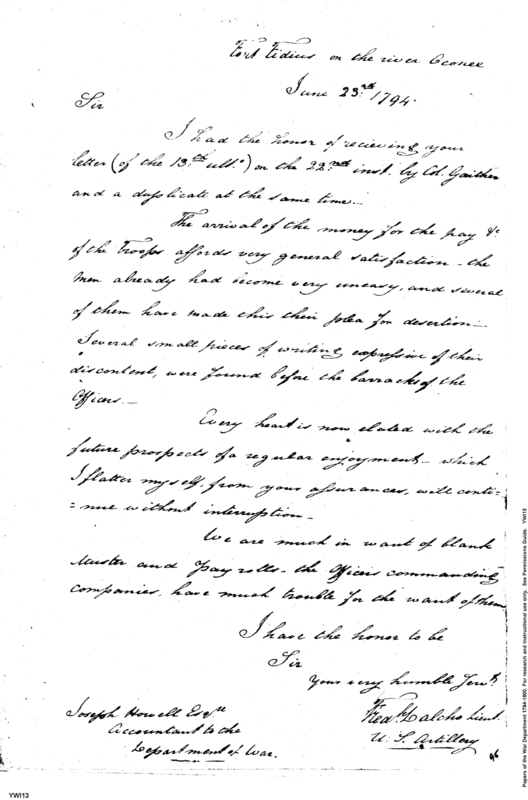 Fort Fidius on the river Oconee
June 23.rd 1794.
Sir
I had the honor of recieveing your
letter (of the 13.th ult.o) on the 22.nd inst. by Col. Gaither
and a duplicate at the same time..
The arrival of the money for the pay &c
of the Troops affords very general satisfaction - the
Men already had become very uneasy, and several
of them have made this their plea for desertion _
Several small pieces of writing expressive of their
discontent, were found before the barracks of the
Officers. _
Every heart is now elated with the
future prospects of a regular enjoyment - which
I flatter myself, from your assurances, will conti=
=nue without interruption _
We are much in want of blank
Muster and pay rolls - the Officers commanding
companies, have much trouble for the want of them
I have the honor to be
Sir
Your very humble Servt.
Joseph Howell Esqre
Accountant to the
Department of War.
Fredk. Dalcho Lieut.
U. S. Artillery
YWI13
Papers of the War Department 1784-1800. For research and instructional use only. See Permissions Guide. YWI13